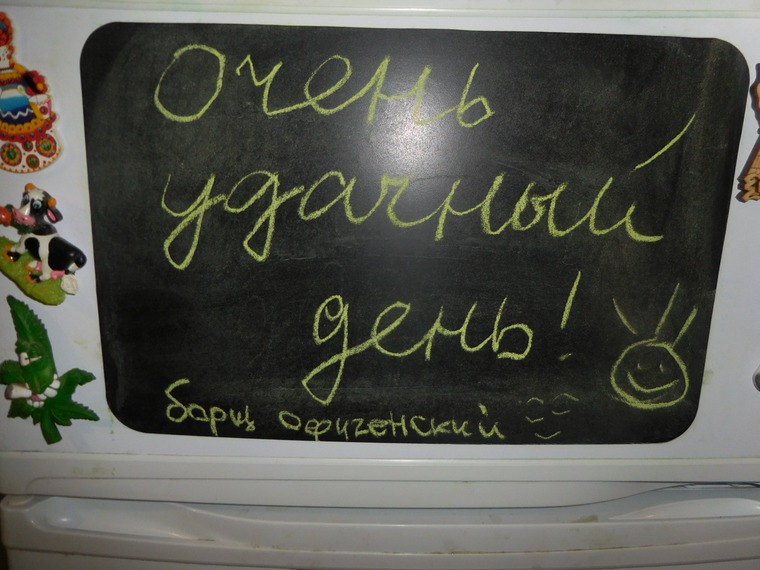 Очень
удачный
день!
борщ офигенский